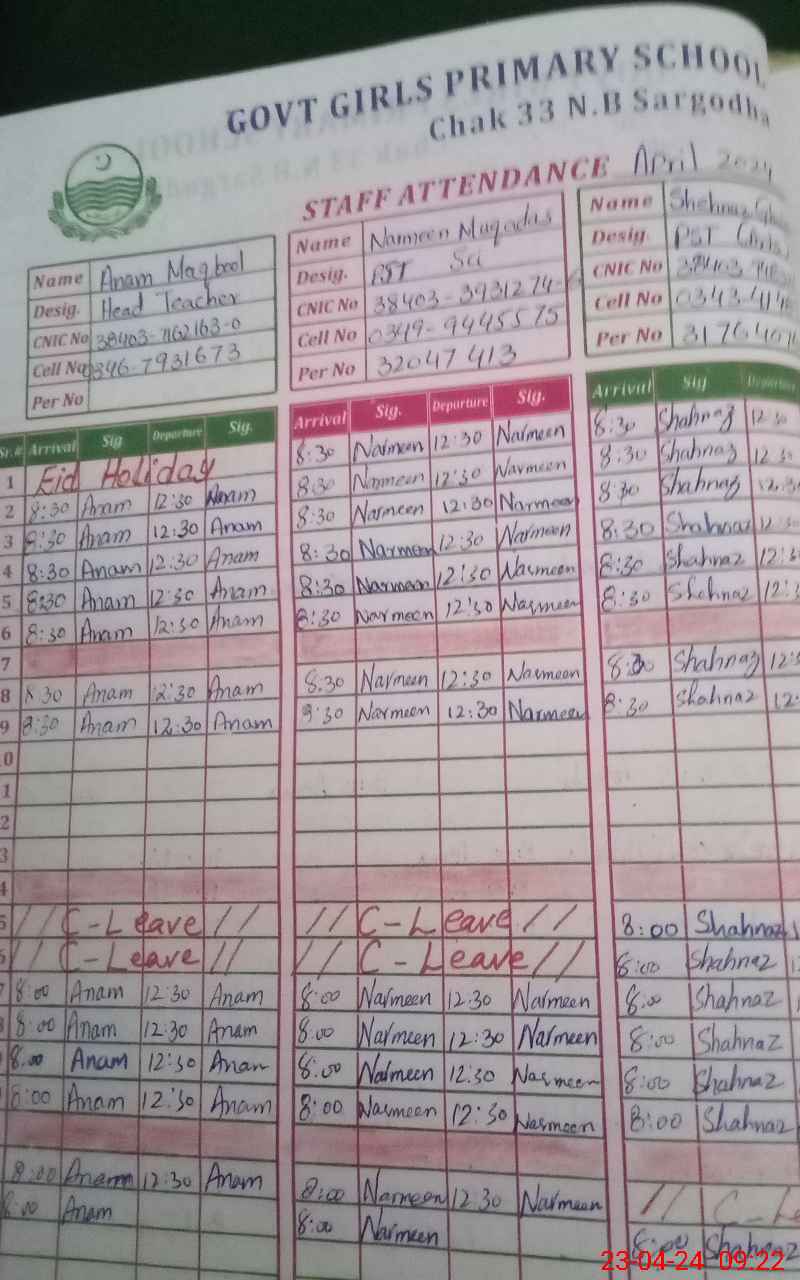 GOVT GIRLS PRIMARY SCHOOL
Chak 33 N.B Sargodha
STAFF ATTENDANCE April 2024
Name Anam Maqbool
Desig. Head Teacher
CNIC No 38403-7162163-0
Cell No 0346-7931673
Per No
Name Narmeen Muqadas
Desig. PST Sci
CNIC No 38403-3931274-
Cell No 0349-9445575
Per No 32047413
Name Shehnaz
Desig. PST (Arts)
CNIC No 38403
Cell No 0343-
Per No
Sr.# Arrival Sig Departure Sig. Arrival Sig. Departure Sig. Arrival Sig Departure
1 Eid Holiday 8:30 Narmeen 12:30 Narmeen 8:30 Shahnaz 12:30
2 8:30 Anam 12:30 Anam 8:30 Narmeen 12:30 Narmeen 8:30 Shahnaz 12:30
3 8:30 Anam 12:30 Anam 8:30 Narmeen 12:30 Narmeen 8:30 Shahnaz 12:3
4 8:30 Anam 12:30 Anam 8:30 Narmeen 12:30 Narmeen 8:30 Shahnaz 12:3
5 8:30 Anam 12:30 Anam 8:30 Narmeen 12:30 Narmeen 8:30 Shahnaz 12:3
6 8:30 Anam 12:30 Anam 8:30 Narmeen 12:30 Narmeen 8:30 Shehnaz 12:3
7
8 8:30 Anam 12:30 Anam 8:30 Narmeen 12:30 Narmeen 8:30 Shahnaz 12:3
9 8:30 Anam 12:30 Anam 8:30 Narmeen 12:30 Narmeen 8:30 Shahnaz 12:
0
1
2
3
4
5 // C-Leave // // C-Leave // 8:00 Shahnaz
6 // C-Leave // // C-Leave // 8:00 Shahnaz
7 8:00 Anam 12:30 Anam 8:00 Narmeen 12:30 Narmeen 8:00 Shahnaz
8 8:00 Anam 12:30 Anam 8:00 Narmeen 12:30 Narmeen 8:00 Shahnaz
8:00 Anam 12:30 Anam 8:00 Narmeen 12:30 Narmeen 8:00 Shahnaz
8:00 Anam 12:30 Anam 8:00 Narmeen 12:30 Narmeen 8:00 Shahnaz
8:00 Anam 12:30 Anam 8:00 Narmeen 12:30 Narmeen // C-Le
8:00 Anam 8:00 Narmeen 8:00 Shahnaz
23-04-24 09:22